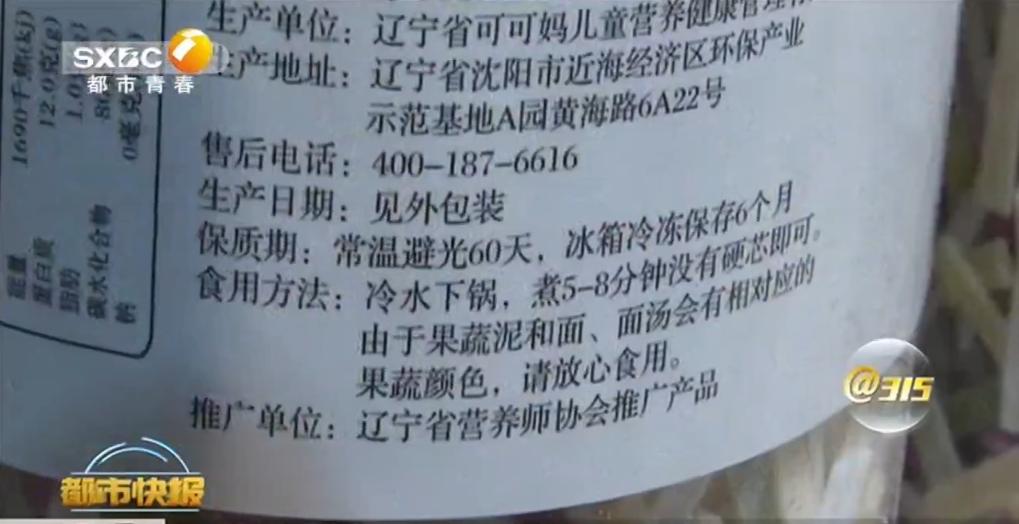 生产单位：辽宁省可可妈儿童营养健康管理
SXBC
都市青春
生产地址：辽宁省沈阳市近海经济区环保产业
示范基地A园黄海路6A22号
售后电话：400-187-6616
生产日期：见外包装
保质期：常温避光60天，冰箱冷冻保存6个月
食用方法：冷水下锅，煮5-8分钟没有硬芯即可。
由于果蔬泥和面、面汤会有相对应的
果蔬颜色，请放心食用。
推广单位：辽宁省营养师协会推广产品
能量 1690千焦(kj)
蛋白质 12.0克(g)
脂肪 1.0
碳水化合物
钠 0毫克
@315
都市快报